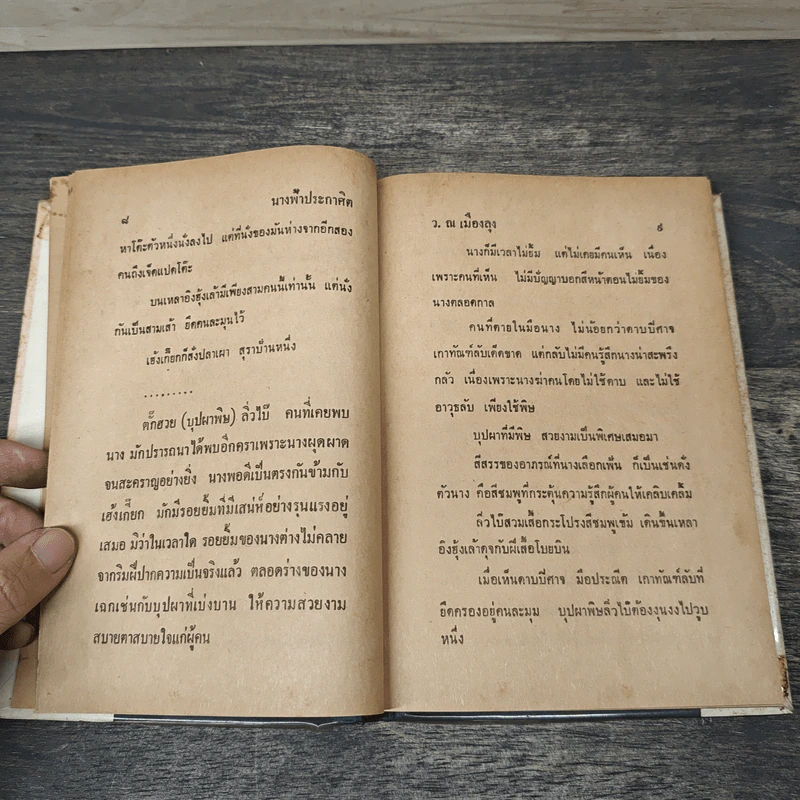 นางฟ้าประกาศิต
๘
หาโต๊ะตัวหนึ่งนั่งลงไป แต่ที่นั่งของมันห่างจากอีกสอง
คนถึงเจ็ดแปดโต๊ะ
บนเหลาอิงฮุ้งเล้ามีเพียงสามคนนี้เท่านั้น แต่นั่ง
กันเป็นสามเส้า ยึดคนละมุมไว้
เฮ้งเกี๊ยกก็สั่งปลาเผา สุราบ้านหนึ่ง
.........
ตั๊กฮวย (บุปผาพิษ) ลิ่วไป๊ คนที่เคยพบ
นาง มักปรารถนาได้พบอีกคราเพราะนางผุดผาด
จนสะคราญอย่างยิ่ง นางพอดีเป็นตรงกันข้ามกับ
เฮ้งเกี๊ยก มักมีรอยยิ้มที่มีเสน่ห์อย่างรุนแรงอยู่
เสมอ มิว่าในเวลาใด รอยยิ้มของนางต่างไม่คลาย
จากริมฝีปากความเป็นจริงแล้ว ตลอดร่างของนาง
เฉกเช่นกับบุปผาที่เบ่งบาน ให้ความสวยงาม
สบายตาสบายใจแก่ผู้คน
ว. ณ เมืองลุง
๙
นางก็มีเวลาไม่ยิ้ม แต่ไม่เคยมีคนเห็น เนื่อง
เพราะคนที่เห็น ไม่มีปัญญาบอกสีหน้าตอนไม่ยิ้มของ
นางตลอดกาล
คนที่ตายในมือนาง ไม่น้อยกว่าดาบปีศาจ
เกาทัณฑ์ลับเด็ดขาด แต่กลับไม่มีคนรู้สึกนางน่าสะพรึง
กลัว เนื่องเพราะนางฆ่าคนโดยไม่ใช้ดาบ และไม่ใช้
อาวุธลับ เพียงใช้พิษ
บุปผาที่มีพิษ สวยงามเป็นพิเศษเสมอมา
สีสรรของอาภรณ์ที่นางเลือกเฟ้น ก็เป็นเช่นดั่ง
ตัวนาง คือสีชมพูที่กระตุ้นความรู้สึกผู้คนให้เคลิบเคลิ้ม
ลิ่วไป๊สวมเสื้อกระโปรงสีชมพูเข้ม เดินขึ้นเหลา
อิงฮุ้งเล้าดุจกับผีเสื้อโบยบิน
เมื่อเห็นดาบปีศาจ มือประณีต เกาทัณฑ์ลับที่
ยึดครองอยู่คนละมุม บุปผาพิษลิ่วไป๊ต้องงุนงงไปวูบ
หนึ่ง